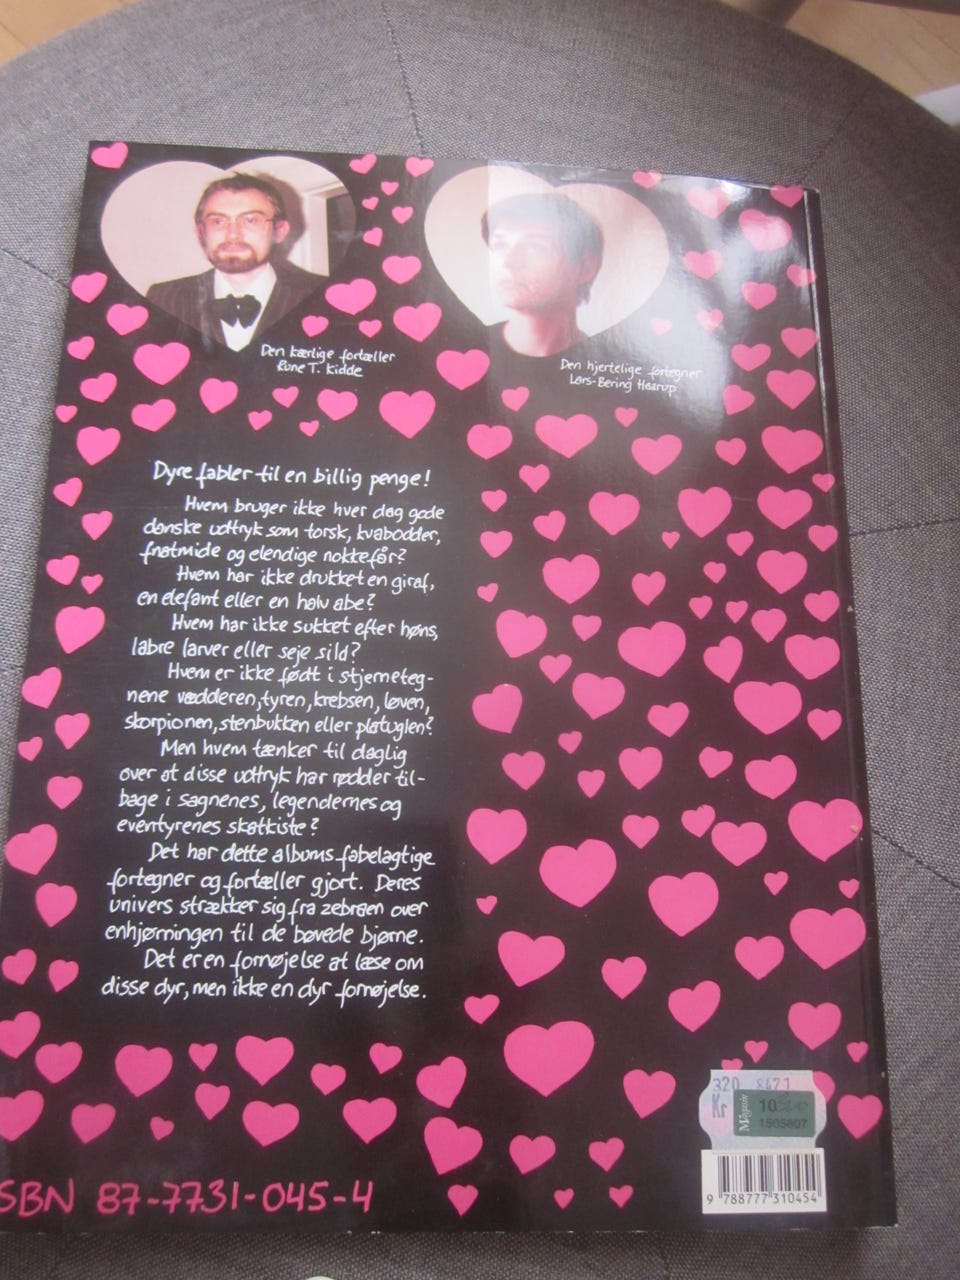 Den kærlige fortæller
Rune T. Kidde
Den hjertelige fortegner
Lars-Bering Haarup
Dyre fabler til en billig penge!
Hvem bruger ikke hver dag gode
danske udtryk som torsk, kvabodder,
fnatmide og elendige noktefår?
Hvem har ikke drukket en giraf,
en elefant eller en halv abe?
Hvem har ikke sukket efter høns,
labre larver eller seje sild?
Hvem er ikke født i stjerneteg-
nene vædderen, tyren, krebsen, løven,
skorpionen, stenbukken eller platuglen?
Men hvem tænker til daglig
over at disse udtryk har rødder til-
bage i sagnenes, legendernes og
eventyrenes skatkiste?
Det har dette albums fabelagtige
fortegner og fortæller gjort. Deres
univers strækker sig fra zebraen over
enhjørningen til de bøvede bjørne.
Det er en fornøjelse at læse om
disse dyr, men ikke en dyr fornøjelse.
320 8421
Kr
Magasin
10
1505807
SBN 87-7731-045-4
9 788777 310454